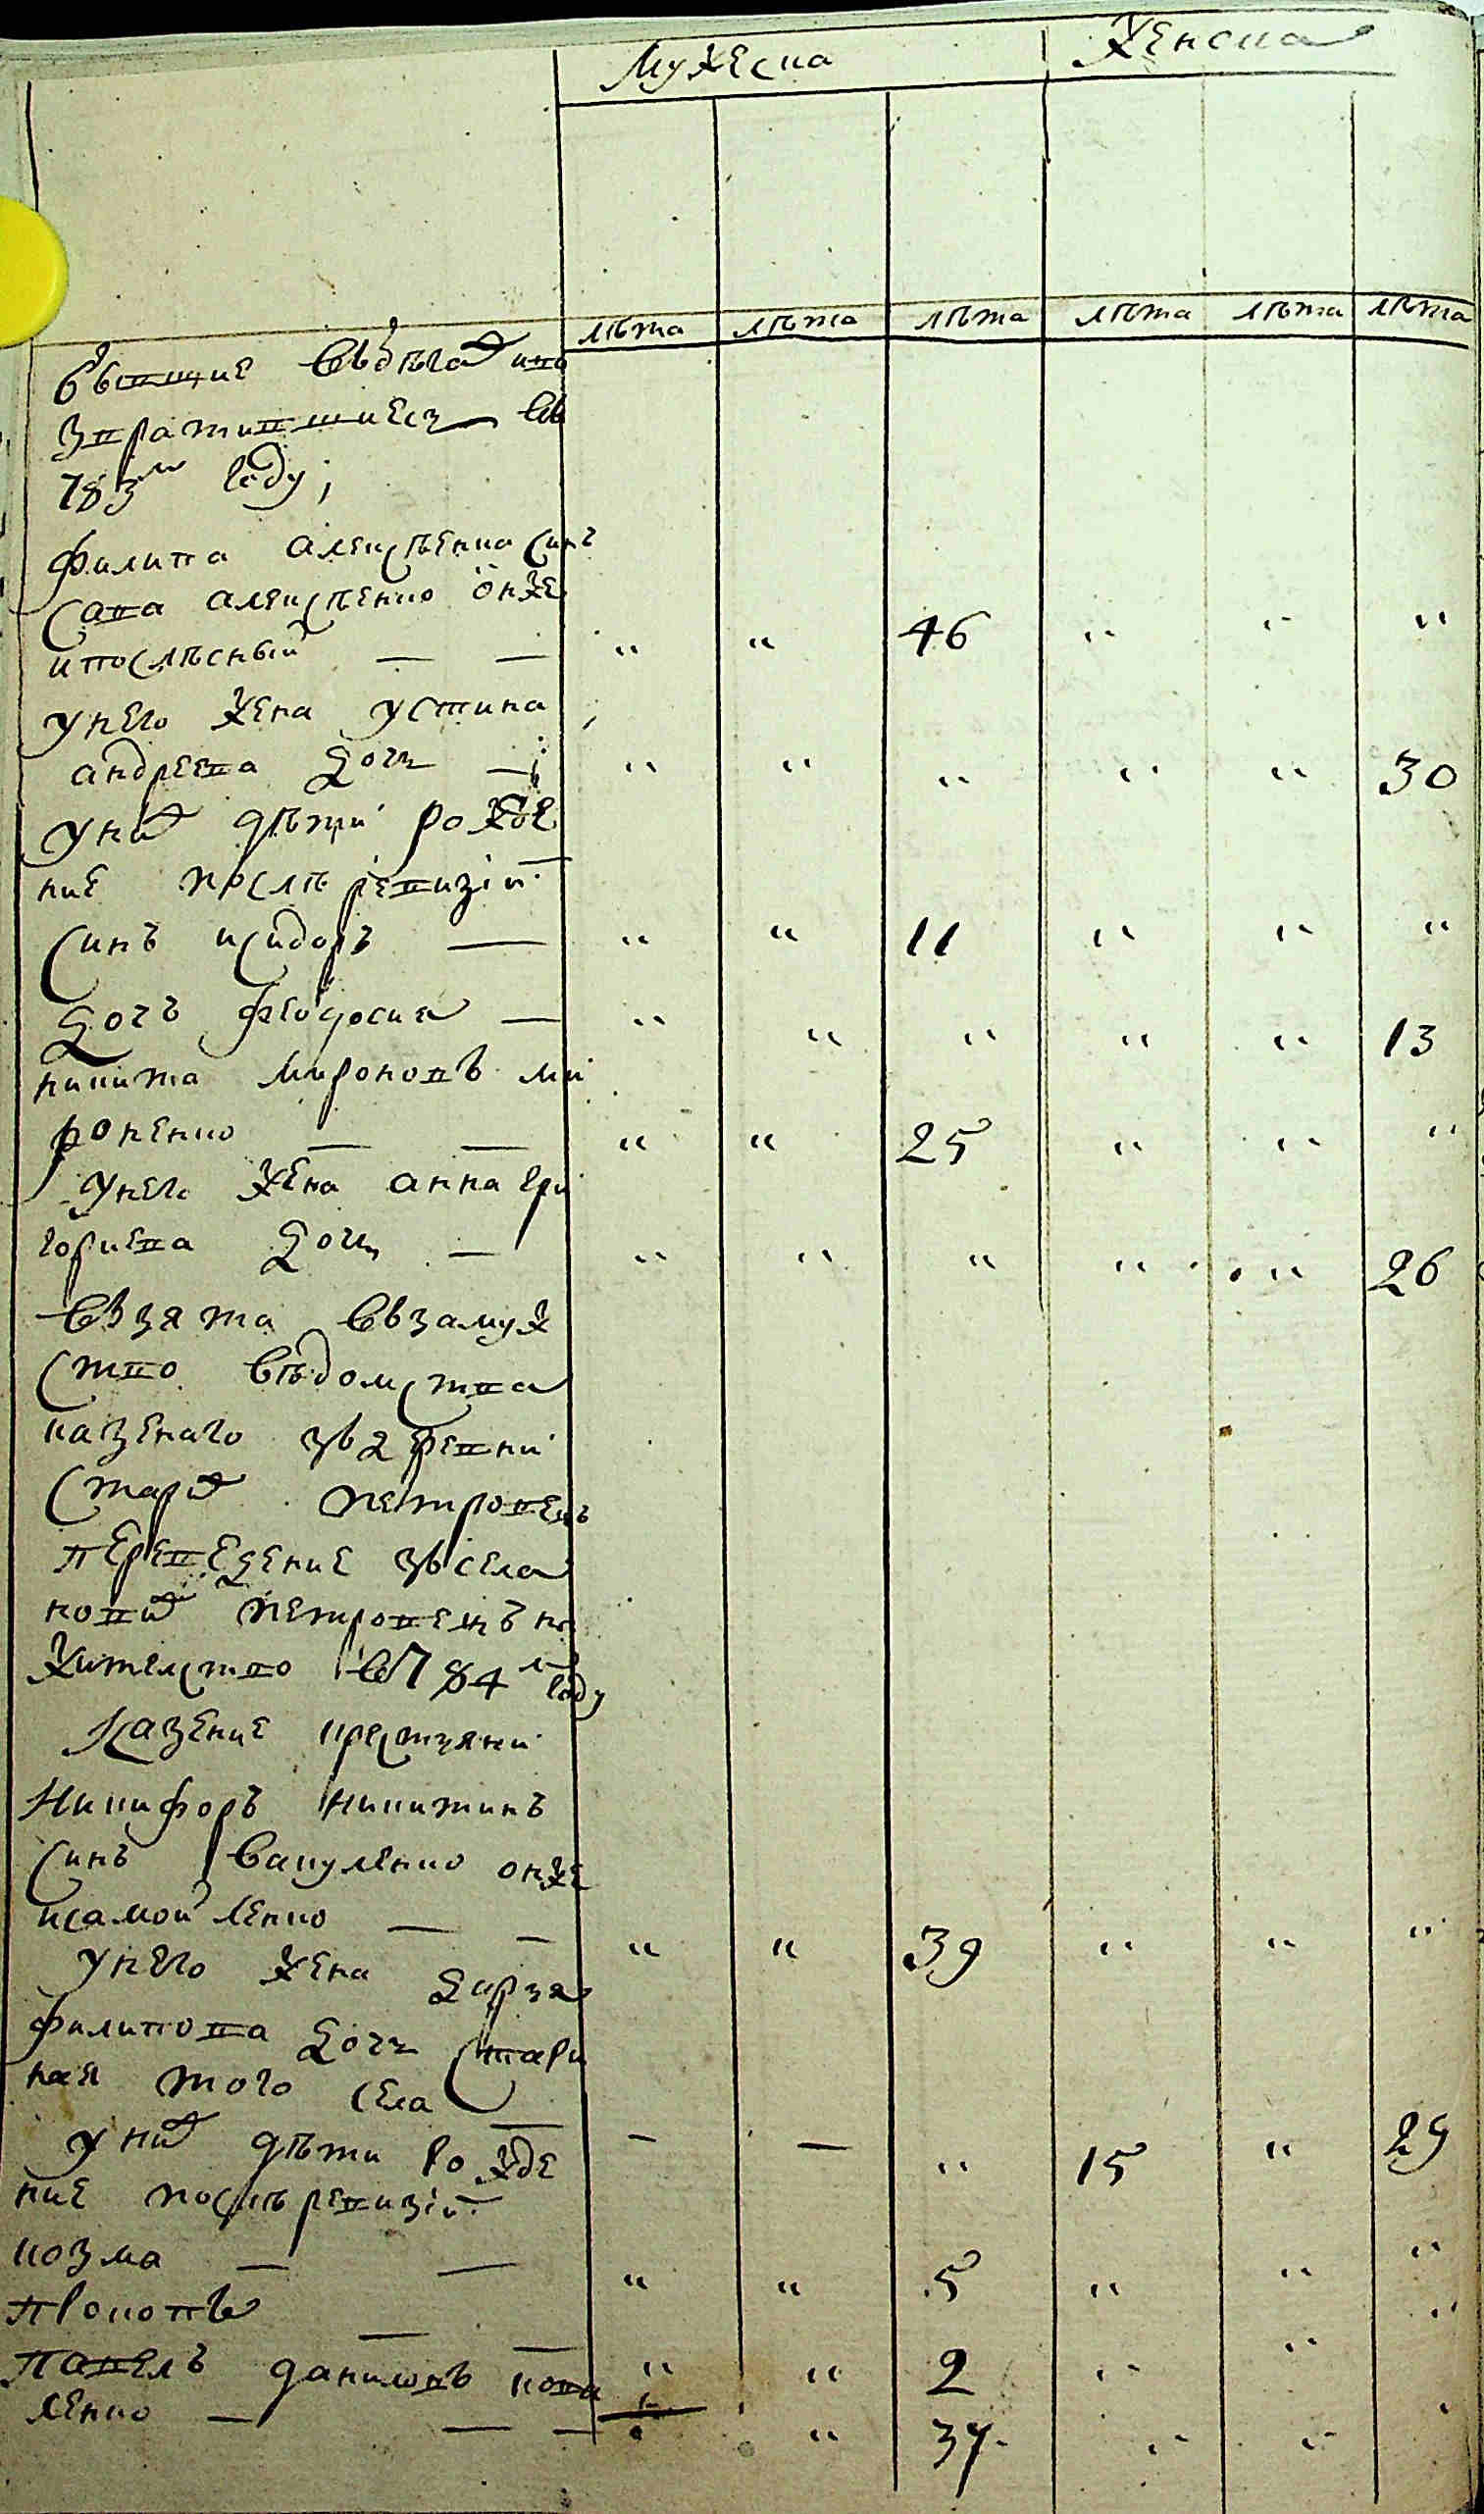 Мужеска Женска
лѣта лѣта лѣта лѣта лѣта лѣта
бывшие вбѣгах ино
звратившиесь въ
783м году;
Филипа алексѣенка синъ
Сава алексѣенко онже
ипослѣсный — — " " 46 " " "
унего жена устина
андреева дочь — " " " " " 30
уних дѣти рожде
ние послѣ ревизіи
Синъ исидоръ — " " 11 " " "
дочъ феодосия — " " " " " 13
никита мироновъ ми
роненко — — " " 25 " " "
унего жена анна гри
гориева дочь — " " " " " 26
взята взамуж
ство вѣдомства
казенаго зъ деревни
Старих петровец
переведение зъ села
нових петровецъ на
жителство в 784м году
Казение крестяни
Никифоръ никитинъ
синъ вакуленко онже
исамойленко — — " " 39 " " "
унего жена дарья
филипова дочь стари
ная того села
уних дѣти рожде — — " 15 " 29
ние послѣ ревизіи
козма — — " " 5 " " "
прокопъ — — " " 2 " " "
павелъ даниловъ кова
ленко — — — " 37 " "